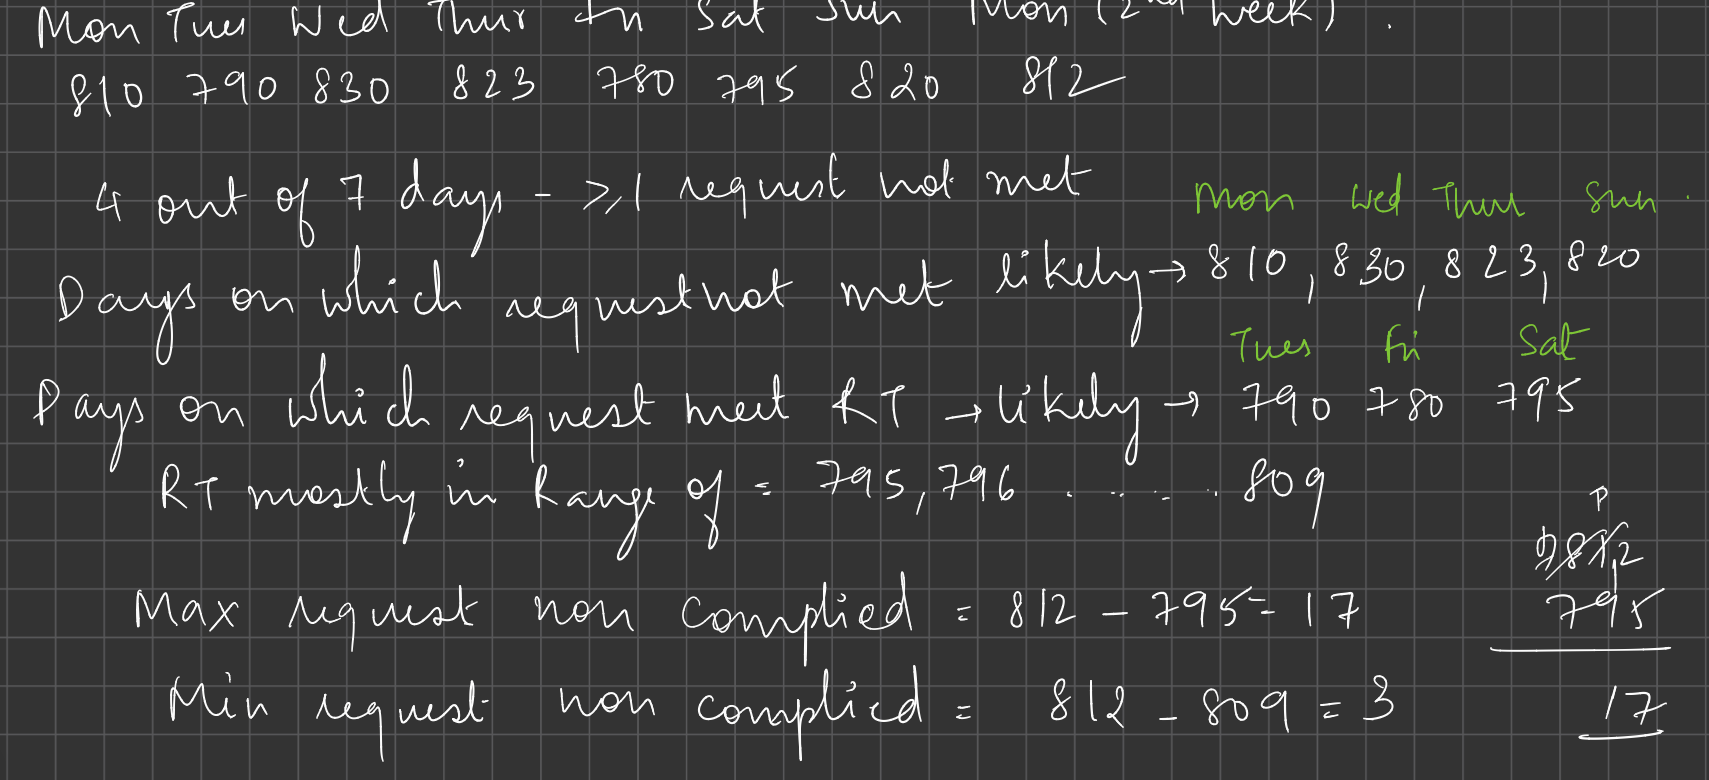 Mon Tues Wed Thur Fri Sat Sun Mon (2nd week).
810 790 830 823 780 795 820 812
4 out of 7 days - ≥1 request not met
Mon Wed Thur Sun.
Days on which request not met likely → 810, 830, 823, 820
Tues Fri Sat
Days on which request meet RT → likely → 790 780 795
RT mostly in Range of = 795, 796 ........ 809
812
Max request non complied = 812 - 795 = 17
795
Min request non complied = 812 - 809 = 3
17